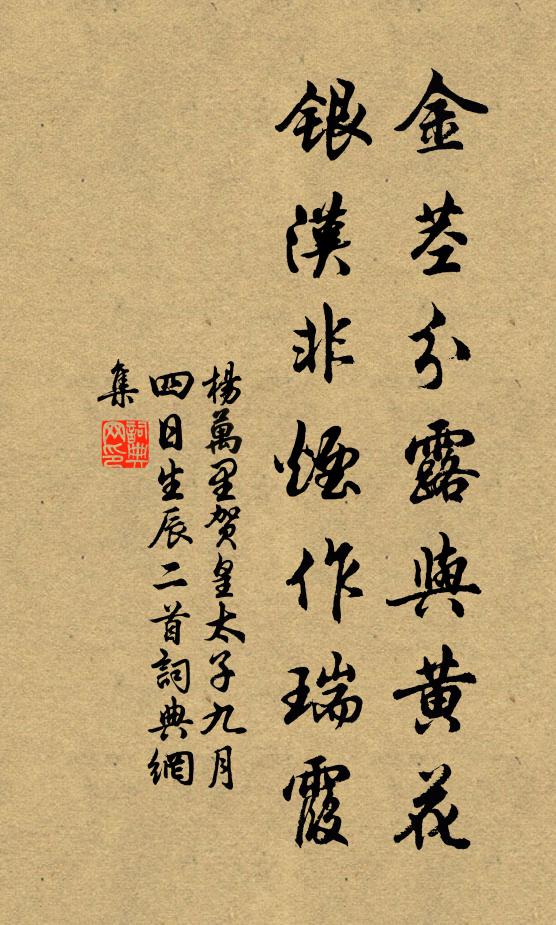 金莖分露與黃花
銀漢非煙作瑞霞
楊萬里賀皇太子九月
四日生辰二首詞典網
集
詞典
网印